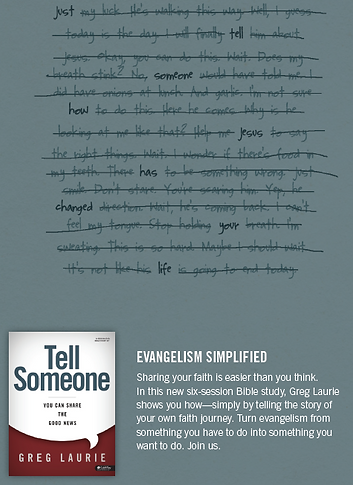 just my luck. He's walking this way. Well, I guess
today is the day. I will finally tell him about
Jesus. Okay, you can do this. Wait. Does my
breath stink? No, someone would have told me. I
did have onions at lunch. And garlic. I'm not sure
how to do this. Here he comes. Why is he
looking at me like that? Help me Jesus to say
the right things. Wait. I wonder if there's food in
my teeth. There has to be something wrong. Just
smile. Don't stare. You're scaring him. Yep, he
changed direction. Wait, he's coming back. I can't
feel my tongue. Stop holding your breath. I'm
sweating. This is so hard. Maybe I should wait.
It's not like his life is going to end today.
Tell
Someone
YOU CAN SHARE
THE
GOOD NEWS
GREG LAURIE
EVANGELISM SIMPLIFIED
Sharing your faith is easier than you think.
In this new six-session Bible study, Greg Laurie
shows you how—simply by telling the story of
your own faith journey. Turn evangelism from
something you have to do into something you
want to do. Join us.